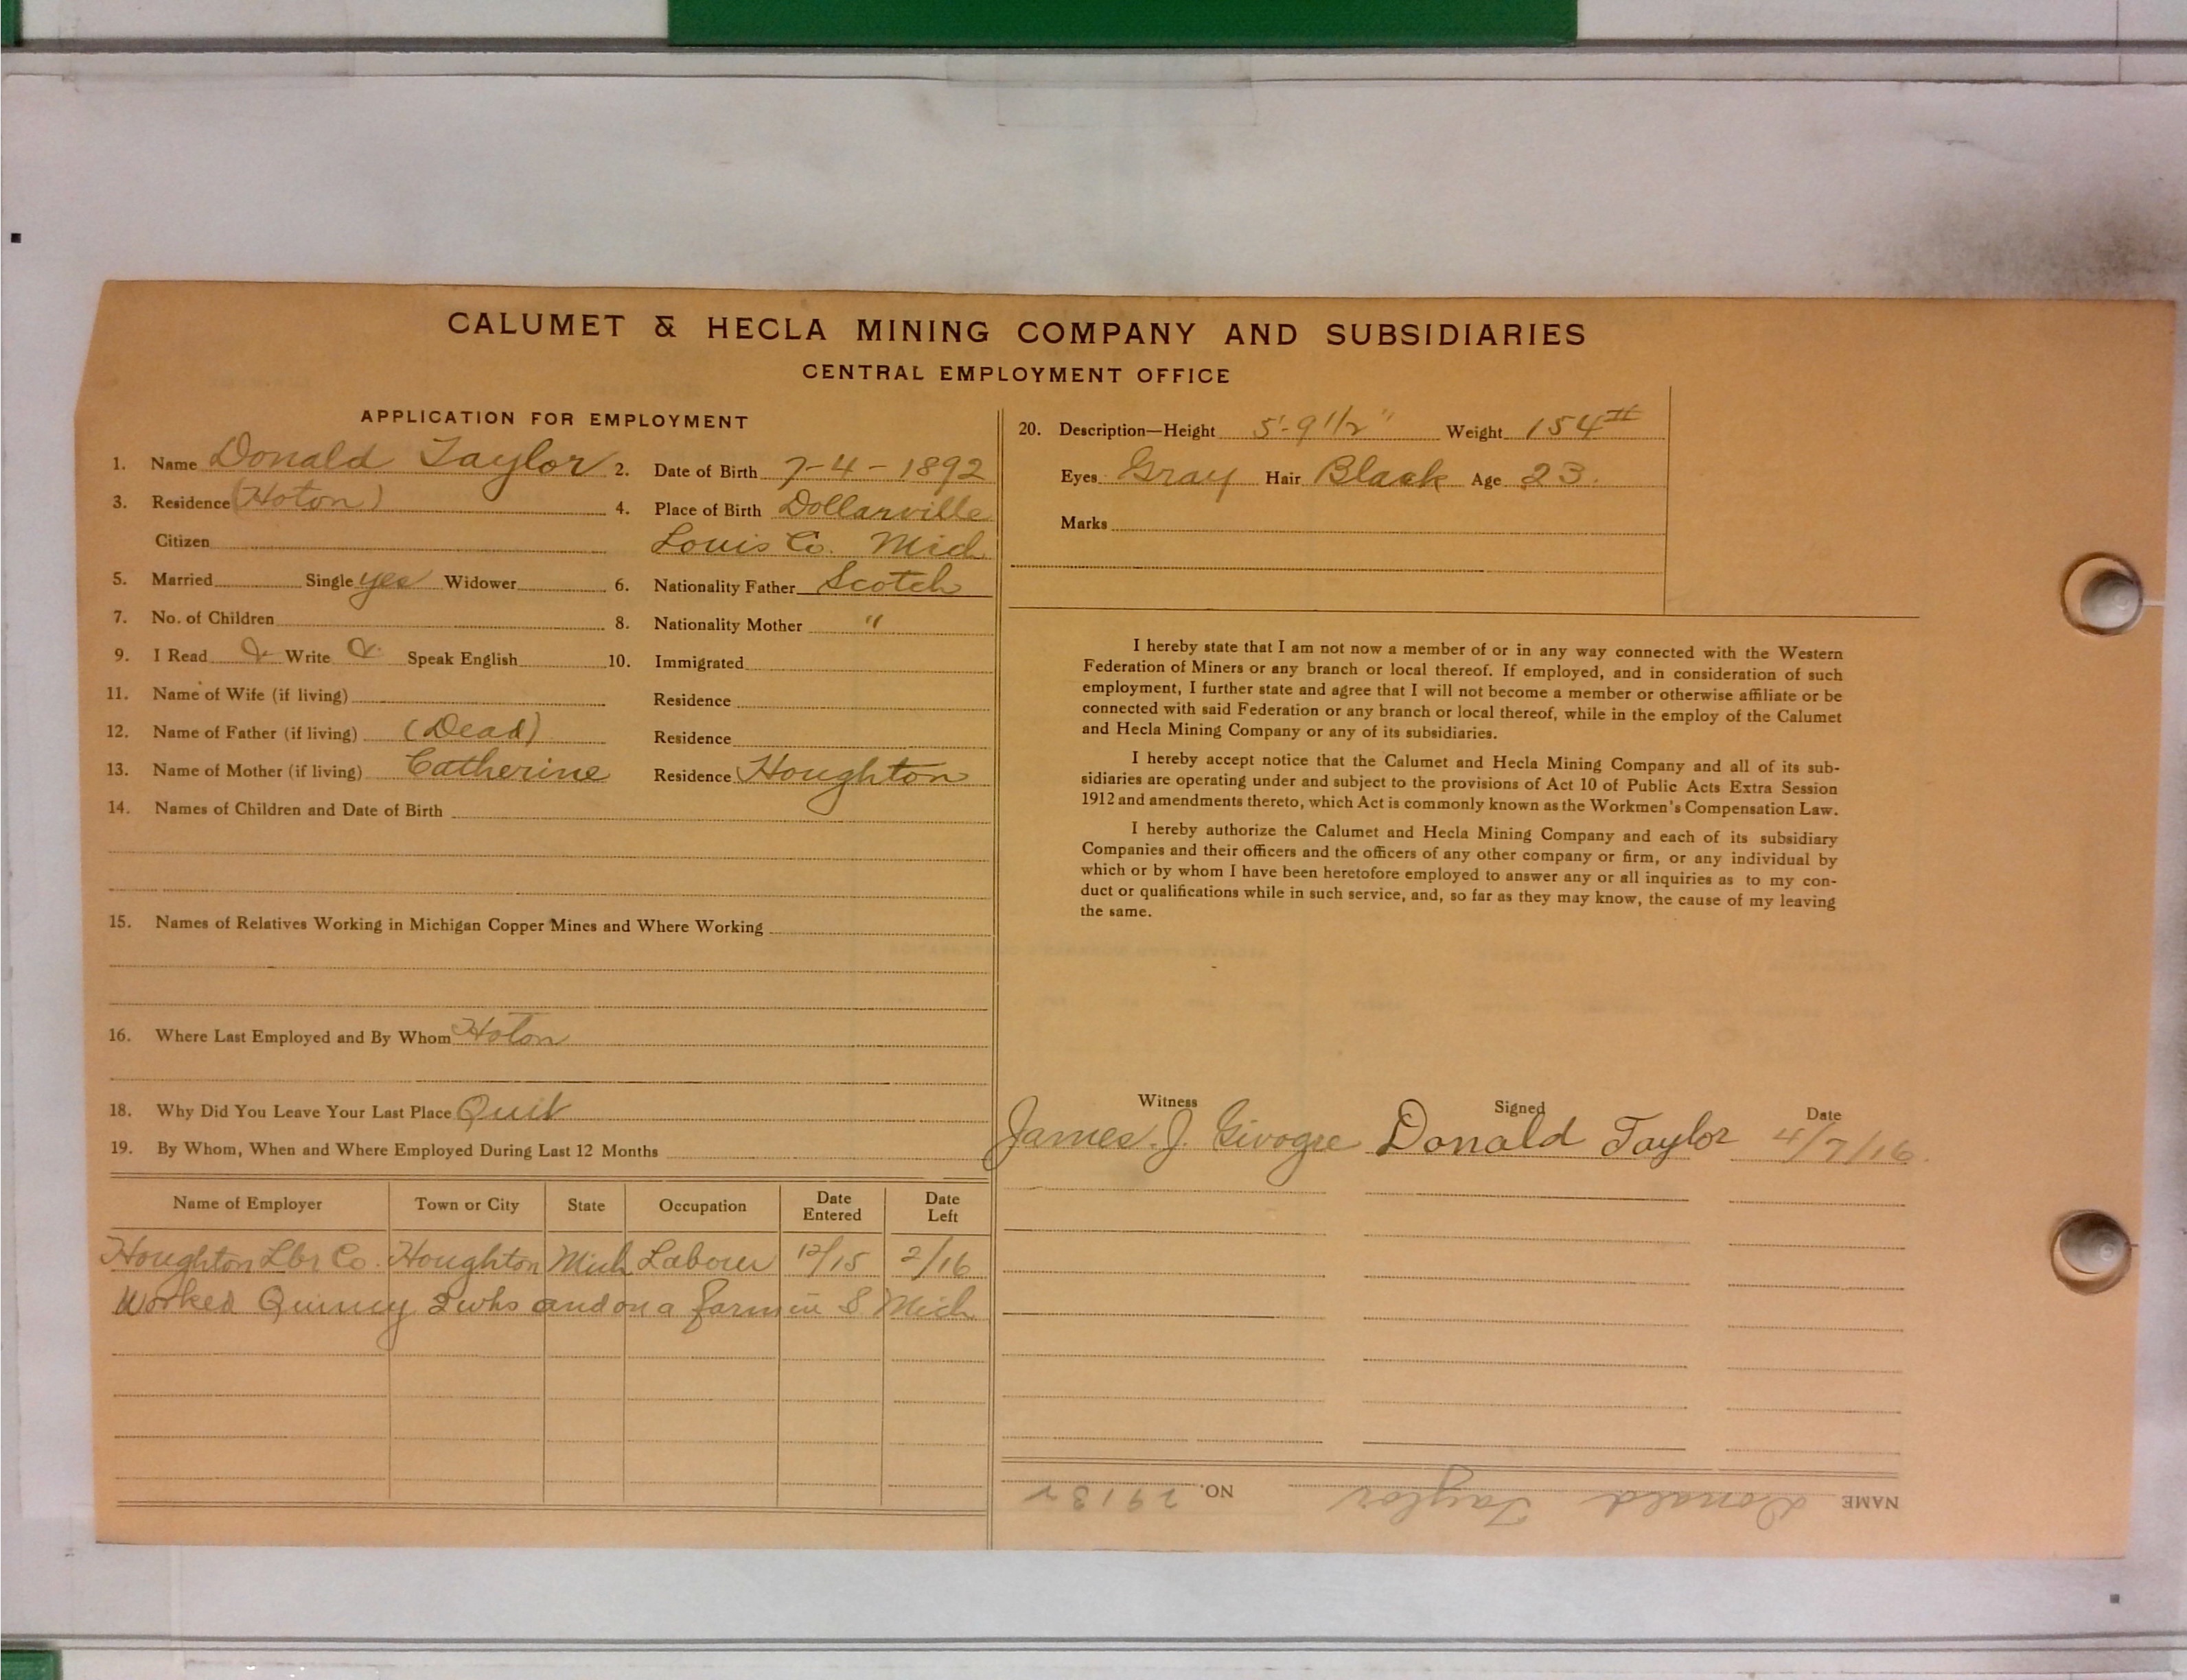 CALUMET & HECLA MINING COMPANY AND SUBSIDIARIES
CENTRAL EMPLOYMENT OFFICE
APPLICATION FOR EMPLOYMENT
1. Name Donald Taylor 2. Date of Birth 7-4-1892
3. Residence (Hoton) 4. Place of Birth Dollarville
Citizen Louis Co. Mich
5. Married Single yes Widower 6. Nationality Father Scotch
7. No. of Children 8. Nationality Mother "
9. I Read Write Speak English 10. Immigrated
11. Name of Wife (if living) Residence
12. Name of Father (if living) (Dead) Residence
13. Name of Mother (if living) Catherine Residence Houghton
14. Names of Children and Date of Birth
15. Names of Relatives Working in Michigan Copper Mines and Where Working
16. Where Last Employed and By Whom Hoton
18. Why Did You Leave Your Last Place Quit
19. By Whom, When and Where Employed During Last 12 Months
Name of Employer Town or City State Occupation Date Entered Date Left
Houghton Lbr Co. Houghton Mich Labour 12/15 2/16
Worked Quincy 2 wks and on a farm in S Mich
20. Description—Height 5'-9 1/2" Weight 154#
Eyes Gray Hair Black Age 23.
Marks
I hereby state that I am not now a member of or in any way connected with the Western
Federation of Miners or any branch or local thereof. If employed, and in consideration of such
employment, I further state and agree that I will not become a member or otherwise affiliate or be
connected with said Federation or any branch or local thereof, while in the employ of the Calumet
and Hecla Mining Company or any of its subsidiaries.
I hereby accept notice that the Calumet and Hecla Mining Company and all of its sub-
sidiaries are operating under and subject to the provisions of Act 10 of Public Acts Extra Session
1912 and amendments thereto, which Act is commonly known as the Workmen's Compensation Law.
I hereby authorize the Calumet and Hecla Mining Company and each of its subsidiary
Companies and their officers and the officers of any other company or firm, or any individual by
which or by whom I have been heretofore employed to answer any or all inquiries as to my con-
duct or qualifications while in such service, and, so far as they may know, the cause of my leaving
the same.
Witness Signed Date
James J. Givogre Donald Taylor 4/7/16.
NAME Donald Taylor NO.